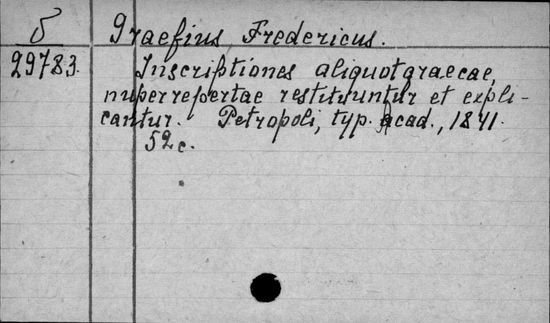 5 Graefius Fredericus.
29783. Inscriptiones aliquot graecae,
nuper repertae restituuntur et expli-
cantur. Petropoli, typ. Acad., 1841.
52 c.